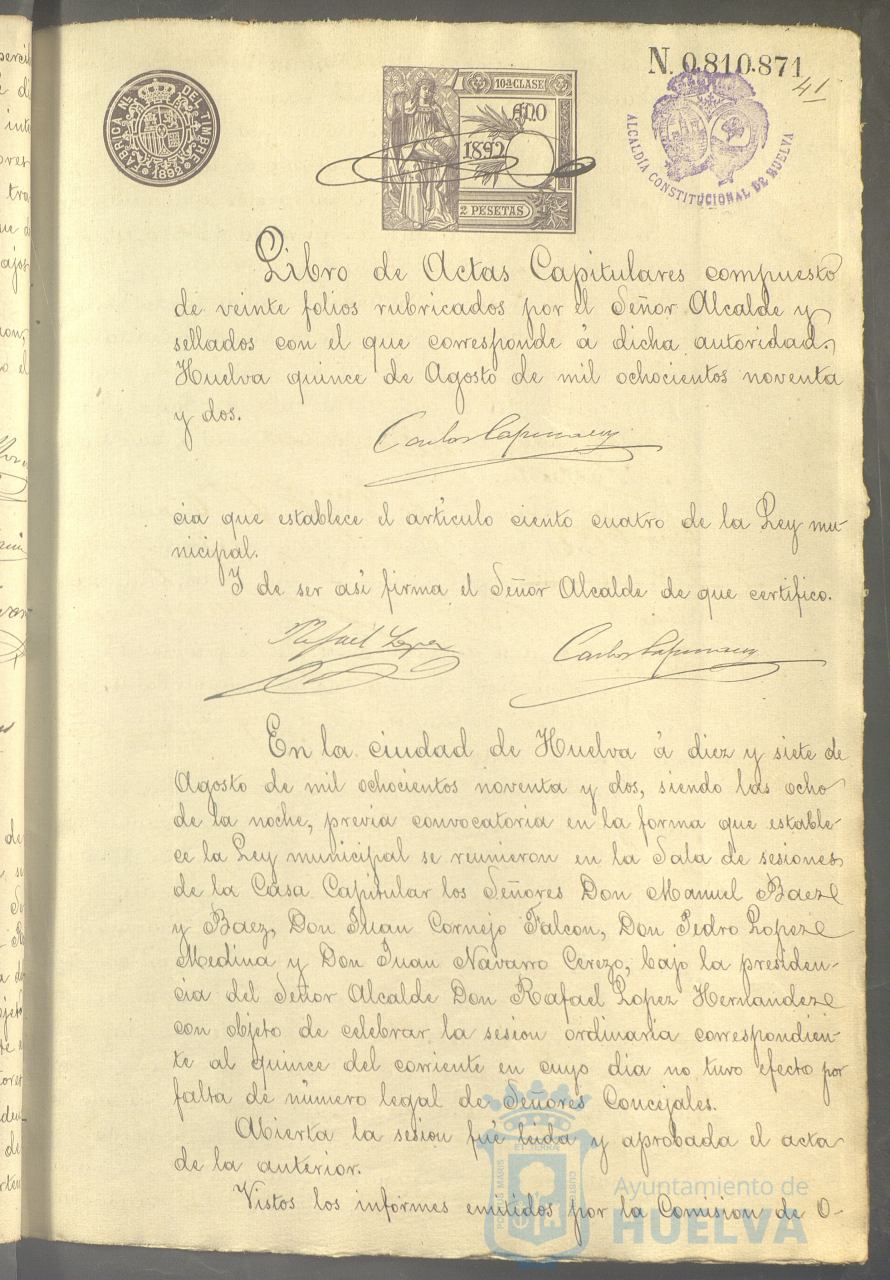 N. 0.810.871
41
FABRICA NL. DEL TIMBRE
1892
10ª CLASE
AÑO
1892
2 PESETAS
ALCALDÍA CONSTITUCIONAL DE HUELVA
Libro de Actas Capitulares compuesto
de veinte folios rubricados por el Señor Alcalde y
sellados con el que corresponde á dicha autoridad.
Huelva quince de Agosto de mil ochocientos noventa
y dos.
Carlos
cia que establece el artículo ciento cuatro de la Ley mu-
nicipal.
Y de ser así firma el Señor Alcalde de que certifico.
Rafael Lopez
Carlos
En la ciudad de Huelva á diez y siete de
Agosto de mil ochocientos noventa y dos, siendo las ocho
de la noche, previa convocatoria en la forma que estable-
ce la Ley municipal se reunieron en la Sala de sesiones
de la Casa Capitular los Señores Don Manuel Baez
y Baez, Don Juan Cornejo Falcon, Don Pedro Lopez
Medina y Don Juan Navarro Cerezo, bajo la presiden-
cia del Señor Alcalde Don Rafael Lopez Hernandez
con objeto de celebrar la sesion ordinaria correspondien-
te al quince del corriente en cuyo dia no tuvo efecto por
falta de número legal de Señores Concejales.
Abierta la sesion fué leida y aprobada el acta
de la anterior.
Vistos los informes emitidos por la Comision de O-
PORTUS MARIS ET TERRÆ CUSTODIA
Ayuntamiento de
HUELVA